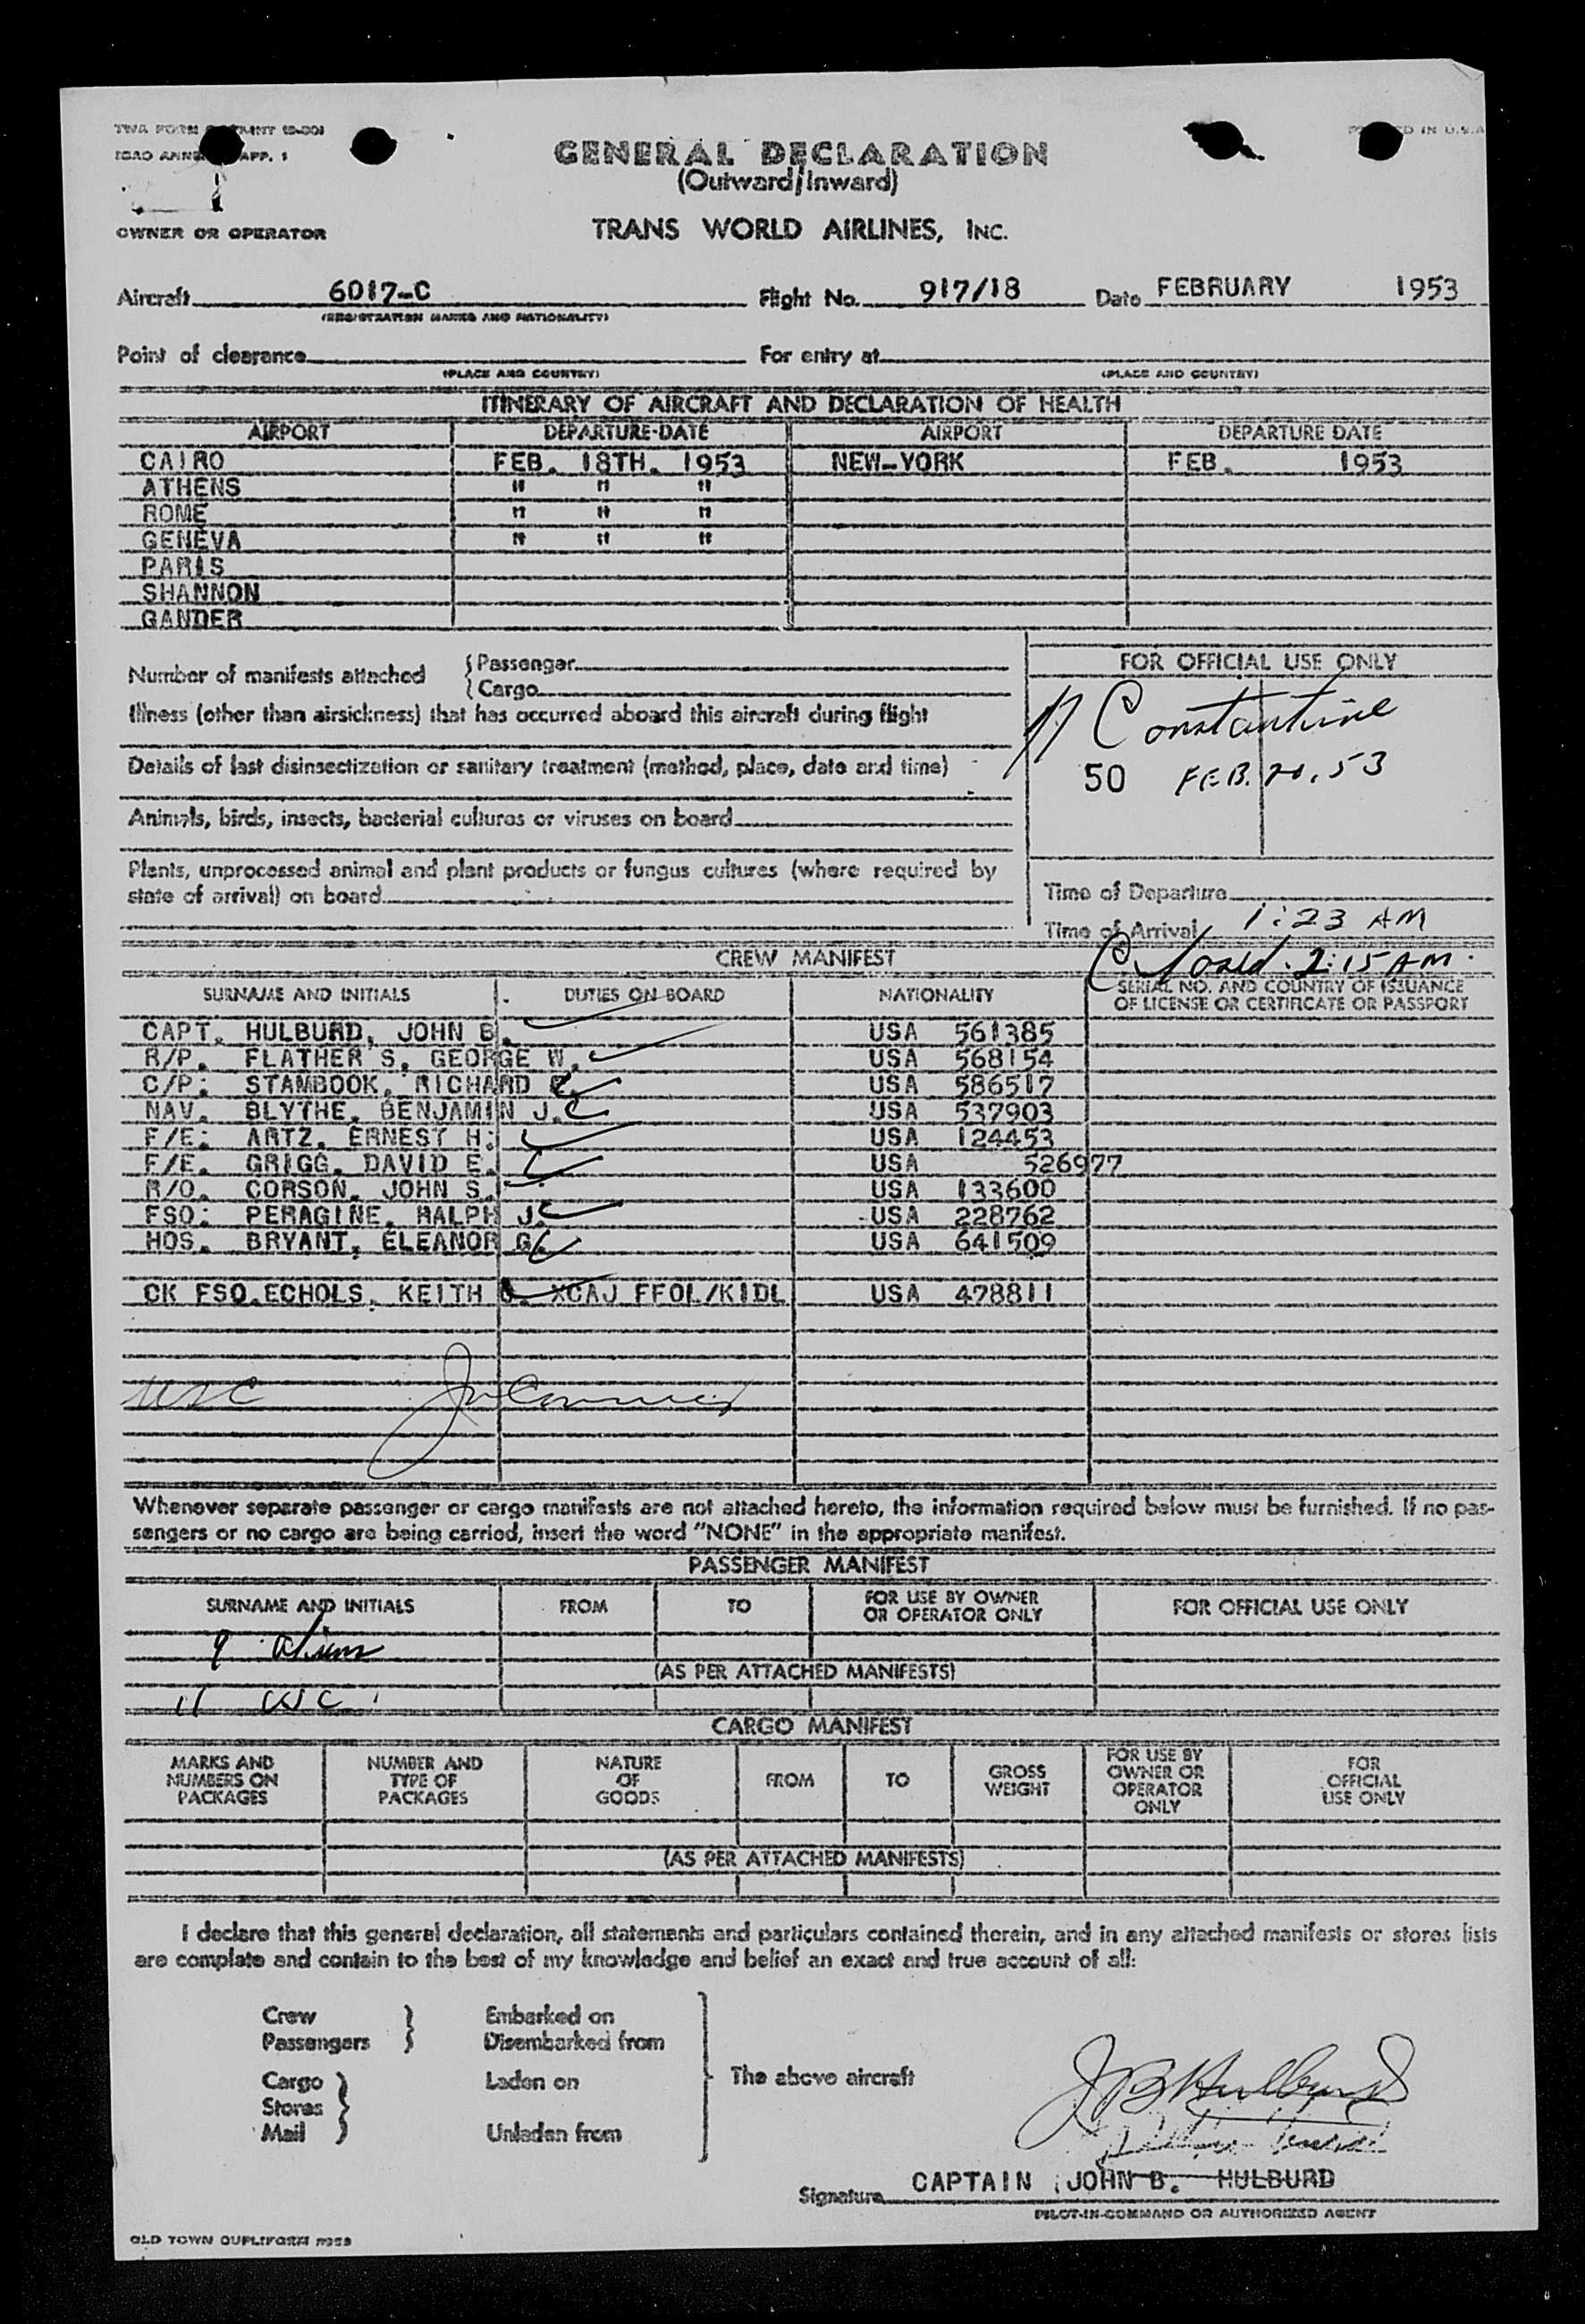 TWA FORM
ICAO ANNE APP. 1
D IN U.S.A
GENERAL DECLARATION
(Outward/Inward)
OWNER OR OPERATOR TRANS WORLD AIRLINES, INC.
Aircraft 6017-C Flight No. 917/18 Date FEBRUARY 1953
(REGISTRATION MARKS AND NATIONALITY)
Point of clearance For entry at
(PLACE AND COUNTRY) (PLACE AND COUNTRY)
ITINERARY OF AIRCRAFT AND DECLARATION OF HEALTH
AIRPORT DEPARTURE-DATE AIRPORT DEPARTURE DATE
CAIRO FEB. 18TH. 1953 NEW-YORK FEB. 1953
ATHENS " " "
ROME " " "
GENEVA " " "
PARIS
SHANNON
GANDER
Number of manifests attached { Passenger
{ Cargo
Illness (other than airsickness) that has occurred aboard this aircraft during flight
Details of last disinsectization or sanitary treatment (method, place, date and time)
Animals, birds, insects, bacterial cultures or viruses on board
Plants, unprocessed animal and plant products or fungus cultures (where required by
state of arrival) on board
FOR OFFICIAL USE ONLY
Constantine
50 FEB. 20, 53
Time of Departure
Time of Arrival 1:23 AM
Closed. 2:15 AM.
CREW MANIFEST
SURNAME AND INITIALS DUTIES ON BOARD NATIONALITY SERIAL NO. AND COUNTRY OF ISSUANCE
OF LICENSE OR CERTIFICATE OR PASSPORT
CAPT. HULBURD, JOHN B. USA 561385
R/P. FLATHER S, GEORGE W. USA 568154
C/P: STAMBOOK, RICHARD USA 586517
NAV. BLYTHE, BENJAMIN J. USA 537903
F/E: ARTZ, ERNEST H. USA 124453
F/E. GRIGG, DAVID E. USA 526977
R/O. CORSON, JOHN S. USA 133600
FSO: PERAGINE, RALPH J. USA 228762
HOS. BRYANT, ELEANOR G. USA 641509
CK FSO.ECHOLS, KEITH XCAJ FFOL/KIDL USA 478811
Whenever separate passenger or cargo manifests are not attached hereto, the information required below must be furnished. If no pas-
sengers or no cargo are being carried, insert the word "NONE" in the appropriate manifest.
PASSENGER MANIFEST
SURNAME AND INITIALS FROM TO FOR USE BY OWNER
OR OPERATOR ONLY FOR OFFICIAL USE ONLY
9 aliens
(AS PER ATTACHED MANIFESTS)
11 USC
CARGO MANIFEST
MARKS AND
NUMBERS ON
PACKAGES
NUMBER AND
TYPE OF
PACKAGES
NATURE
OF
GOODS
FROM
TO
GROSS
WEIGHT
FOR USE BY
OWNER OR
OPERATOR
ONLY
FOR
OFFICIAL
USE ONLY
(AS PER ATTACHED MANIFESTS)
I declare that this general declaration, all statements and particulars contained therein, and in any attached manifests or stores lists
are complete and contain to the best of my knowledge and belief an exact and true account of all:
Crew } Embarked on
Passengers } Disembarked from
Cargo } Laden on The above aircraft
Stores }
Mail } Unladen from
J B Hulburd
Signature CAPTAIN JOHN B. HULBURD
PILOT-IN-COMMAND OR AUTHORIZED AGENT
OLD TOWN DUPLIFORM